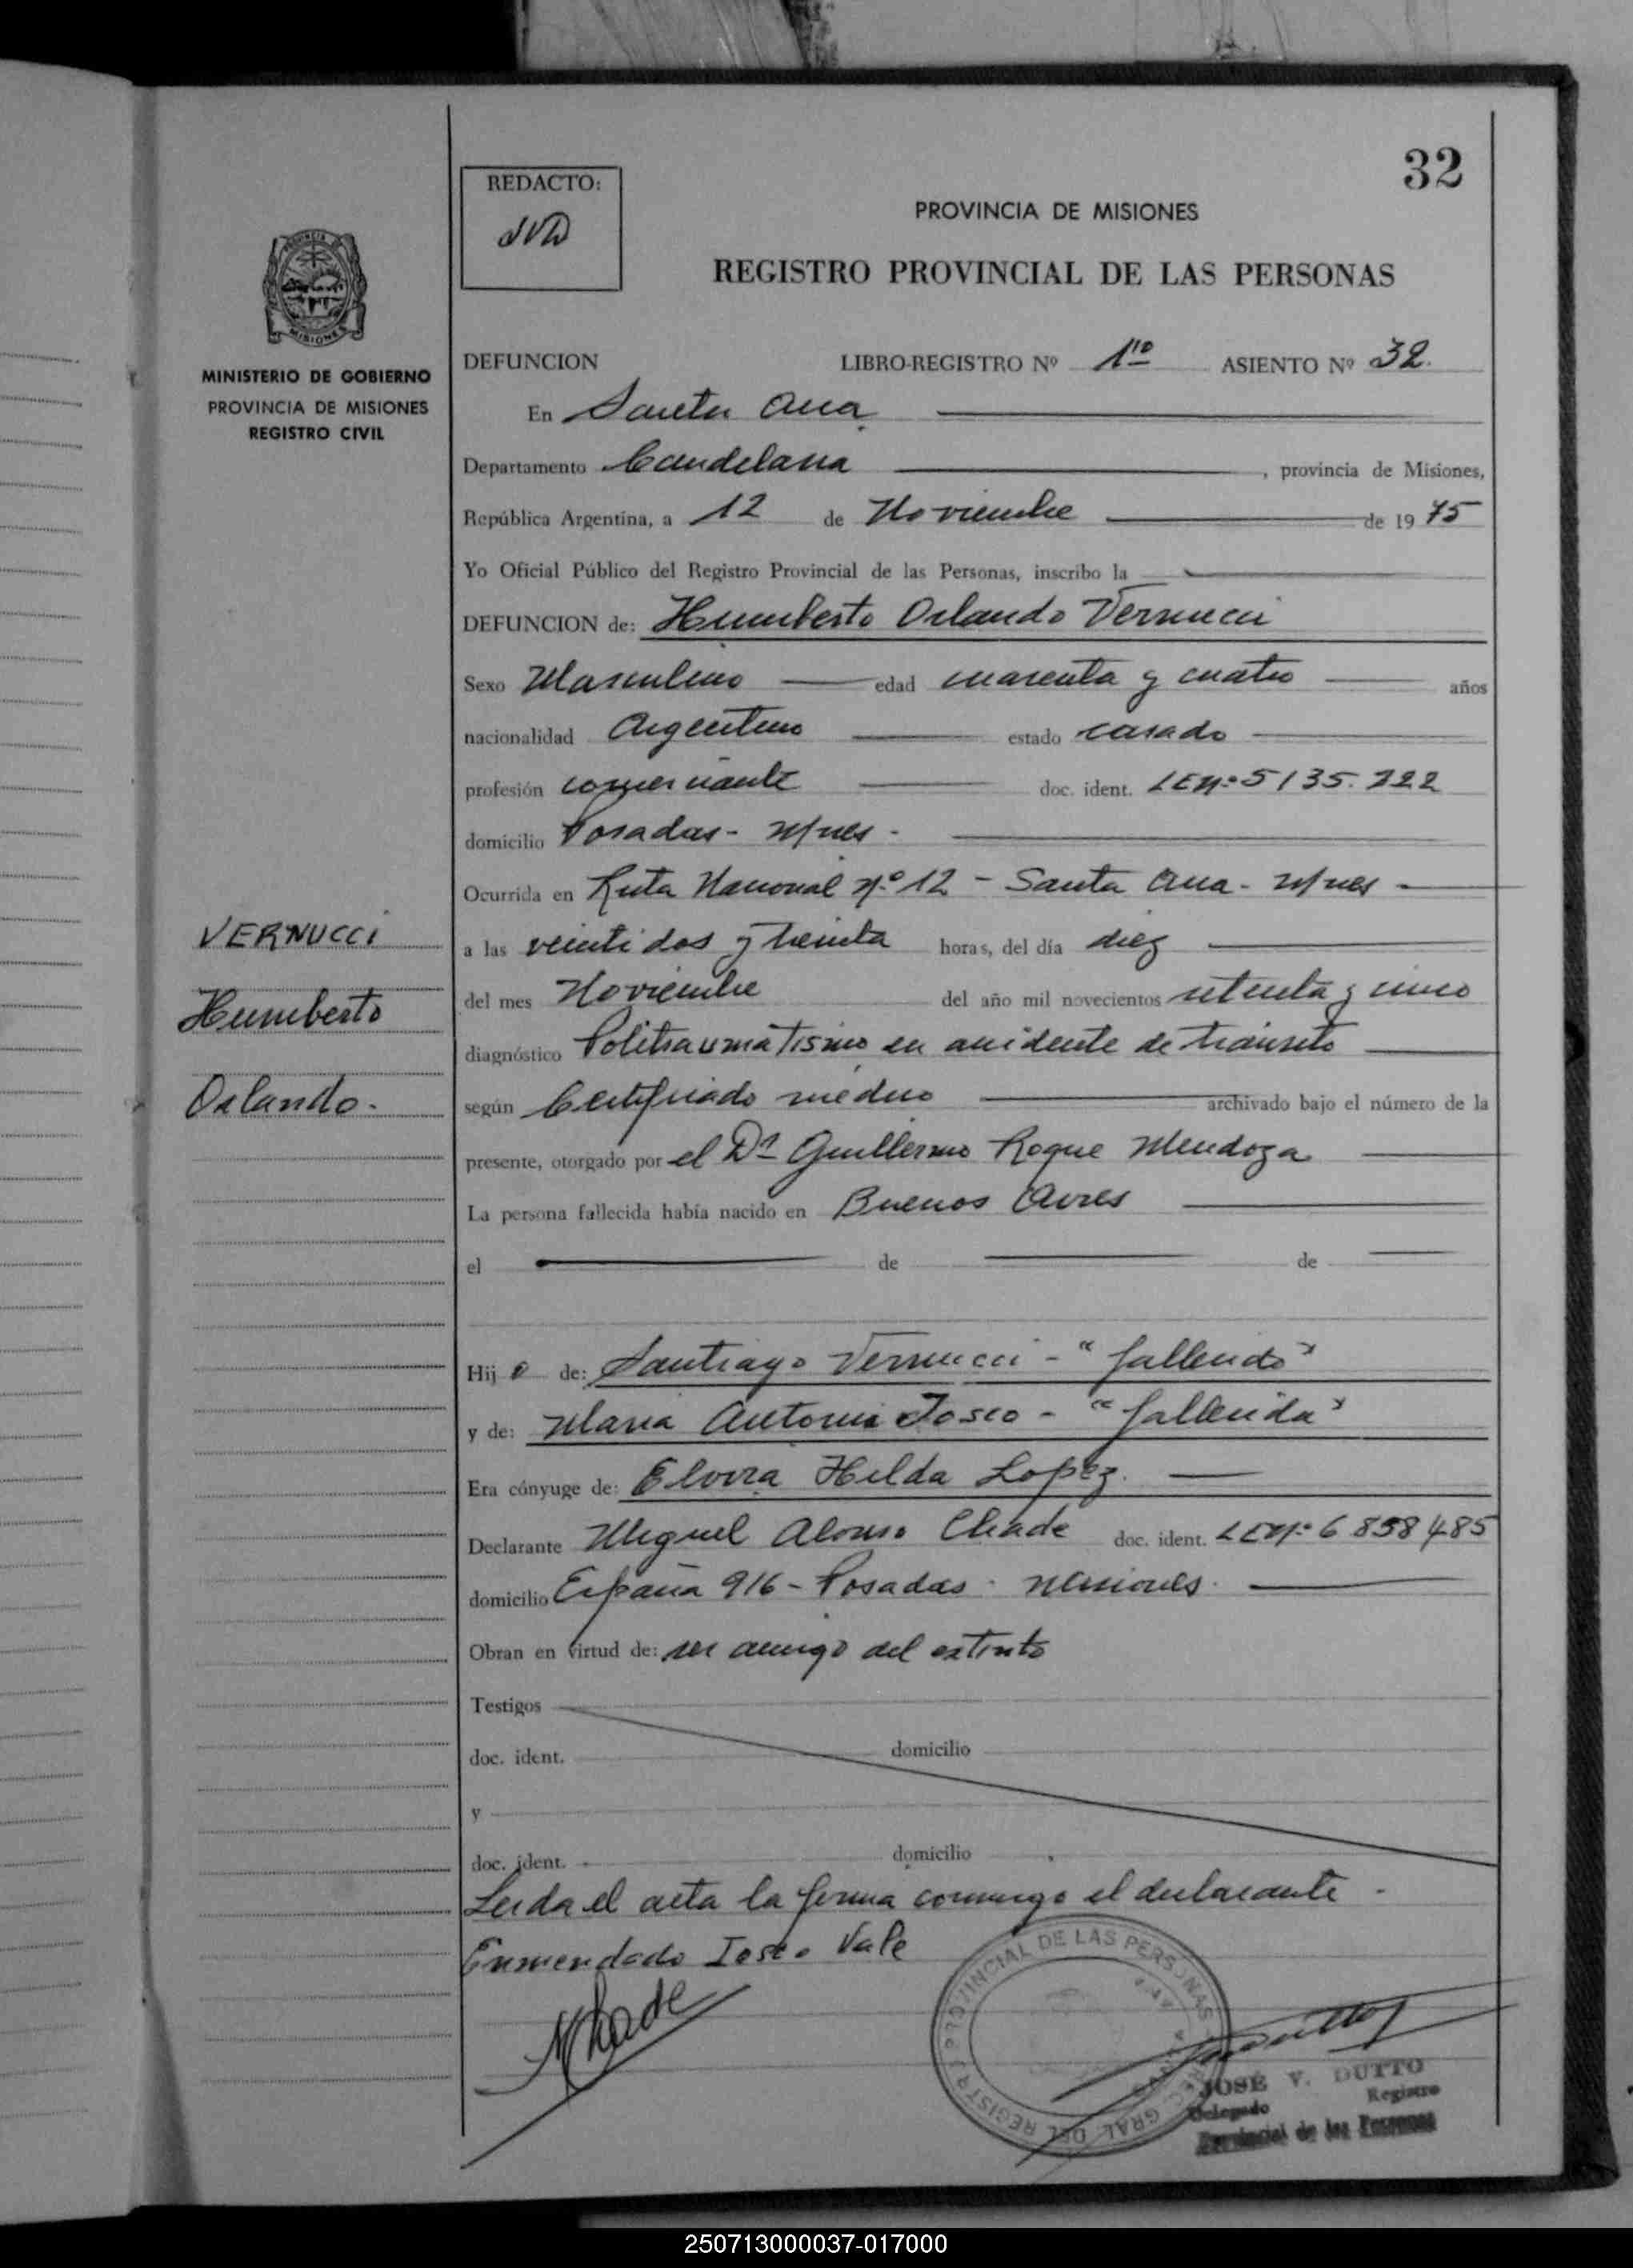 32
REDACTO:
PROVINCIA DE MISIONES
REGISTRO PROVINCIAL DE LAS PERSONAS
MINISTERIO DE GOBIERNO
PROVINCIA DE MISIONES
REGISTRO CIVIL
DEFUNCION LIBRO-REGISTRO Nº 1ro ASIENTO Nº 32.
En Santa Ana
Departamento Candelaria, provincia de Misiones,
República Argentina, a 12 de Noviembre de 1975
Yo Oficial Público del Registro Provincial de las Personas, inscribo la
DEFUNCION de: Humberto Orlando Vernucci
Sexo Masculino edad cuarenta y cuatro años
nacionalidad Argentino estado casado
profesión comerciante doc. ident. LENº 5135.722
domicilio Posadas - Mnes -
Ocurrida en Ruta Nacional Nº 12 - Santa Ana - Mnes -
VERNUCCI
Humberto
Orlando.
a las veinti dos y treinta horas, del día diez
del mes Noviembre del año mil novecientos setenta y cinco
diagnóstico Politraumatismo en accidente de tránsito
según Certificado médico archivado bajo el número de la
presente, otorgado por el Dr Guillermo Roque Mendoza
La persona fallecida había nacido en Buenos Aires
el de de
Hij o de: Santiago Vernucci - "fallecido"
y de: Maria Antonia Tosco - "fallecida"
Era cónyuge de: Elvira Hilda Lopez.
Declarante Miguel Alonso Chade doc. ident. LENº 6 858 485
domicilio España 916 - Posadas - Misiones.
Obran en virtud de: ser amigo del extinto
Testigos
doc. ident. domicilio
y
doc. ident. domicilio
Leida el acta la firma conmigo el declarante -
Enmendado Tosco Vale
Chade
REGISTRO PROVINCIAL DE LAS PERSONAS
DIREC. GRAL DEL
JOSE V. DUTTO
Delegado Registro
Provincial de las Personas
250713000037-017000